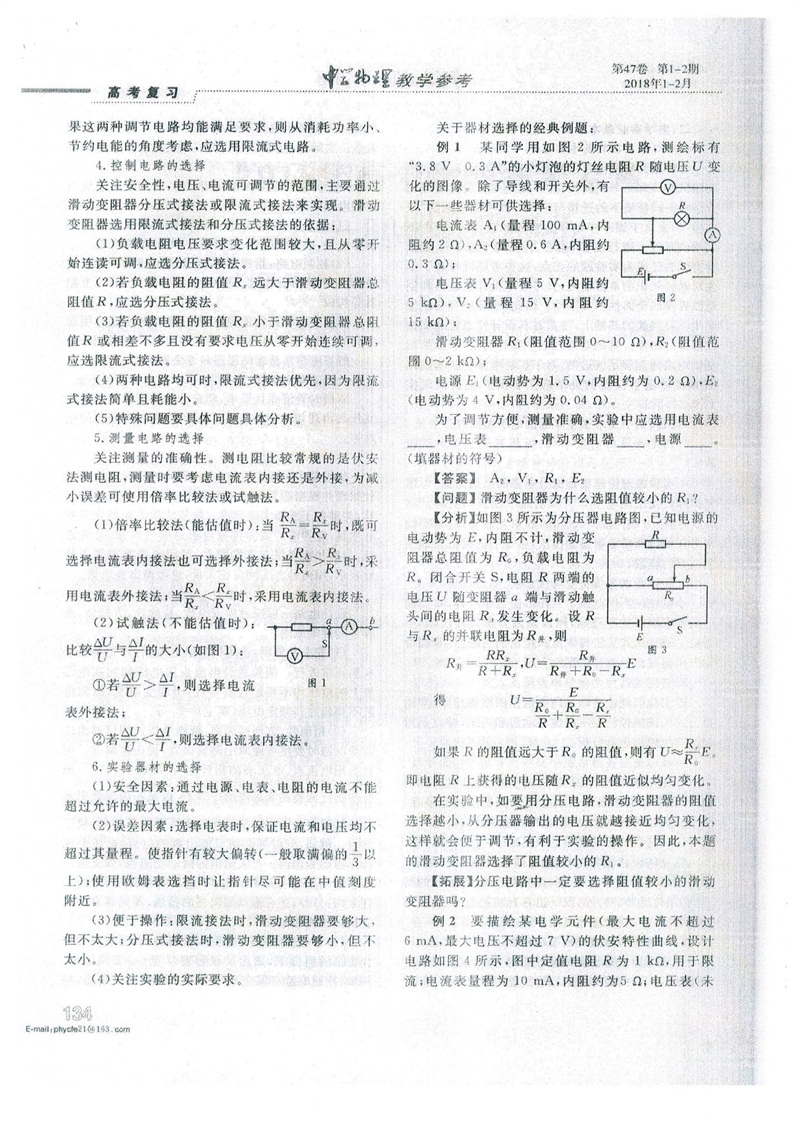 高考复习
中学物理教学参考
第47卷 第1-2期
2018年1-2月
果这两种调节电路均能满足要求,则从消耗功率小、
节约电能的角度考虑,应选用限流式电路。
4.控制电路的选择
关注安全性,电压、电流可调节的范围,主要通过
滑动变阻器分压式接法或限流式接法来实现。滑动
变阻器选用限流式接法和分压式接法的依据:
(1)负载电阻电压要求变化范围较大,且从零开
始连续可调,应选分压式接法。
(2)若负载电阻的阻值 Rₓ 远大于滑动变阻器总
阻值 R,应选分压式接法。
(3)若负载电阻的阻值 Rₓ 小于滑动变阻器总阻
值 R 或相差不多且没有要求电压从零开始连续可调,
应选限流式接法。
(4)两种电路均可时,限流式接法优先,因为限流
式接法简单且耗能小。
(5)特殊问题要具体问题具体分析。
5.测量电路的选择
关注测量的准确性。测电阻比较常规的是伏安
法测电阻,测量时要考虑电流表内接还是外接,为减
小误差可使用倍率比较法或试触法。
(1)倍率比较法(能估值时):当 R_A/Rₓ=Rₓ/R_V 时,既可
选择电流表内接法也可选择外接法;当 R_A/Rₓ>Rₓ/R_V 时,采
用电流表外接法;当 R_A/Rₓ<Rₓ/R_V 时,采用电流表内接法。
(2)试触法(不能估值时):
比较 ΔU/U 与 ΔI/I 的大小(如图1):
①若 ΔU/U>ΔI/I,则选择电流
表外接法;
a
A
b
S
V
图 1
②若 ΔU/U<ΔI/I,则选择电流表内接法。
6.实验器材的选择
(1)安全因素:通过电源、电表、电阻的电流不能
超过允许的最大电流。
(2)误差因素:选择电表时,保证电流和电压均不
超过其量程。使指针有较大偏转(一般取满偏的 1/3 以
上);使用欧姆表选挡时让指针尽可能在中值刻度
附近。
(3)便于操作:限流接法时,滑动变阻器要够大,
但不太大;分压式接法时,滑动变阻器要够小,但不
太小。
(4)关注实验的实际要求。
关于器材选择的经典例题:
例 1 某同学用如图 2 所示电路,测绘标有
“3.8 V 0.3 A”的小灯泡的灯丝电阻 R 随电压 U 变
化的图像。除了导线和开关外,有
以下一些器材可供选择:
电流表 A₁(量程 100 mA,内
阻约 2 Ω),A₂(量程 0.6 A,内阻约
0.3 Ω);
电压表 V₁(量程 5 V,内阻约
5 kΩ),V₂(量程 15 V,内阻约
15 kΩ);
V
R
A
E
S
图 2
滑动变阻器 R₁(阻值范围 0～10 Ω),R₂(阻值范
围 0～2 kΩ);
电源 E₁(电动势为 1.5 V,内阻约为 0.2 Ω),E₂
(电动势为 4 V,内阻约为 0.04 Ω)。
为了调节方便,测量准确,实验中应选用电流表
____,电压表____,滑动变阻器____,电源____。
(填器材的符号)
【答案】 A₂,V₁,R₁,E₂
【问题】滑动变阻器为什么选阻值较小的 R₁?
【分析】如图 3 所示为分压器电路图,已知电源的
电动势为 E,内阻不计,滑动变
阻器总阻值为 R₀,负载电阻为
R。闭合开关 S,电阻 R 两端的
电压 U 随变阻器 a 端与滑动触
头间的电阻 Rₓ 发生变化。设 R
与 Rₓ 的并联电阻为 R并,则
R
a
b
R₀
E
S
图 3
R并=RRₓ/(R+Rₓ),U=R并/(R并+R₀−Rₓ)E
得 U=E/(R₀/R+R₀/Rₓ−Rₓ/R)
如果 R 的阻值远大于 R₀ 的阻值,则有 U≈Rₓ/R₀E。
即电阻 R 上获得的电压随 Rₓ 的阻值近似均匀变化。
在实验中,如要用分压电路,滑动变阻器的阻值
选择越小,从分压器输出的电压就越接近均匀变化,
这样就会便于调节,有利于实验的操作。因此,本题
的滑动变阻器选择了阻值较小的 R₁。
【拓展】分压电路中一定要选择阻值较小的滑动
变阻器吗?
例 2 要描绘某电学元件(最大电流不超过
6 mA,最大电压不超过 7 V)的伏安特性曲线,设计
电路如图 4 所示,图中定值电阻 R 为 1 kΩ,用于限
流;电流表量程为 10 mA,内阻约为 5 Ω;电压表(未
134
E-mail:phycfe21@163.com